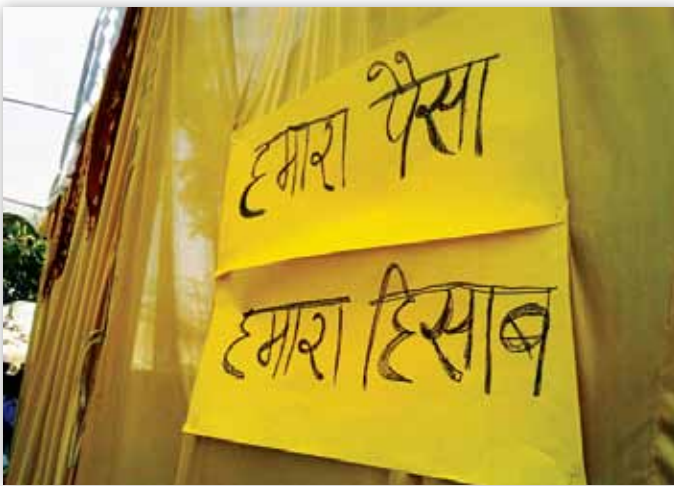 हमारा पैसा
हमारा हिसाब